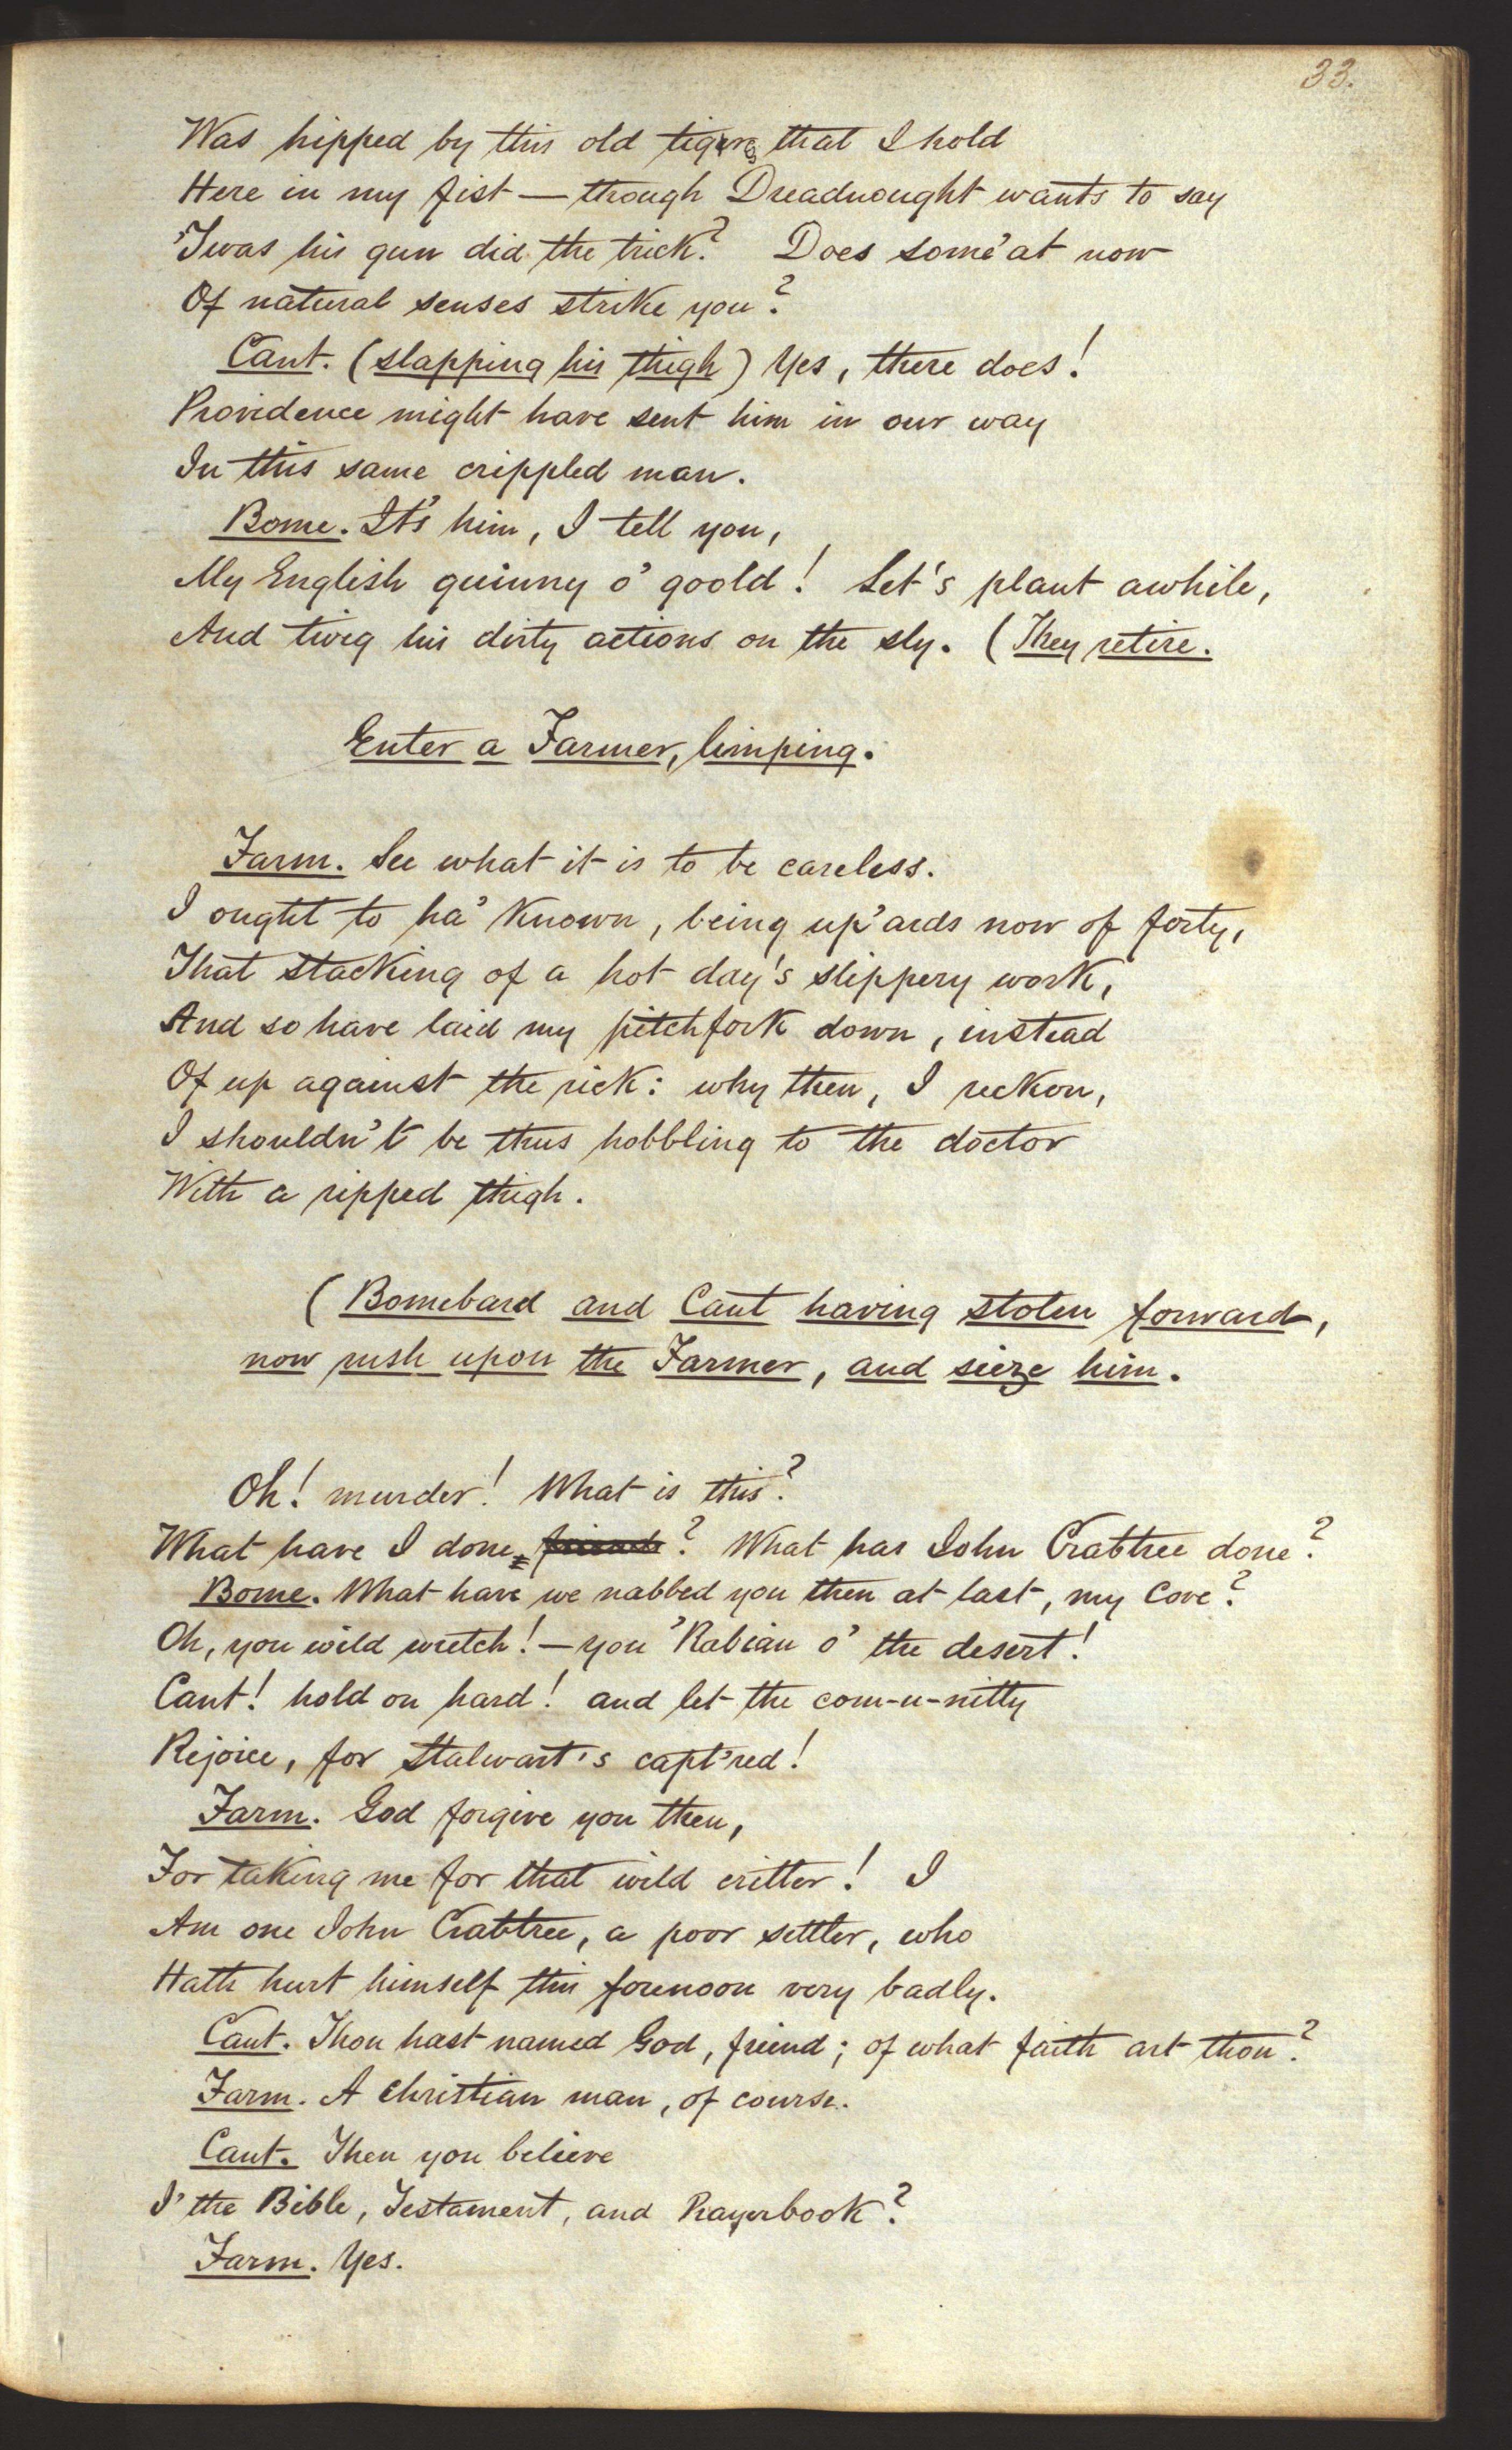 33.
Was hipped by this old tigers that I hold
Here in my fist — though Dreadnought wants to say
'Twas his gun did the trick? Does some'at now
Of natural senses strike you?
Cant. (slapping his thigh) Yes, there does!
Providence might have sent him in our way
In this same crippled man.
Bome. It's him, I tell you,
My English guinny o' goold! Let's plant awhile,
And twig his dirty actions on the sly. (They retire.
Enter a Farmer, limping.
Farm. See what it is to be careless.
I ought to ha' known, being up'ards now of forty,
That stacking of a hot day's slippery work,
And so have laid my pitchfork down, instead
Of up against the rick: why then, I reckon,
I shouldn't be thus hobbling to the doctor
With a ripped thigh.
(Bomebard and Cant having stolen forward,
now rush upon the Farmer, and sieze him.
Oh! murder! What is this?
What have I done, friends? What has John Crabtree done?
Bome. What have we nabbed you then at last, my Cove?
Oh, you wild wretch! — you 'Rabian o' the desert!
Cant! hold on hard! and let the com-u-nitty
Rejoice, for Stalwart's capt'red!
Farm. God forgive you then,
For taking me for that wild critter! I
Am one John Crabtree, a poor settler, who
Hath hurt himself this forenoon very badly.
Cant. Thou hast named God, friend; of what faith art thou?
Farm. A Christian man, of course.
Cant. Then you believe
I' the Bible, Testament, and Prayerbook?
Farm. Yes.